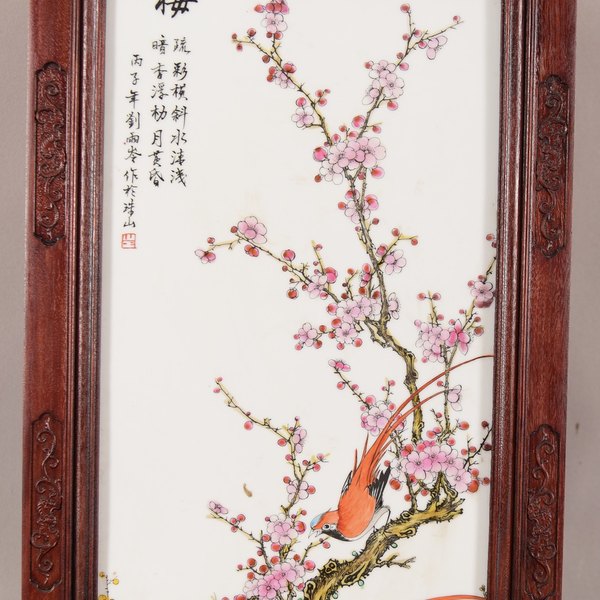 梅
疏彩横斜水清浅
暗香浮枍月黄昏
丙子年劉雨岺作於珠山